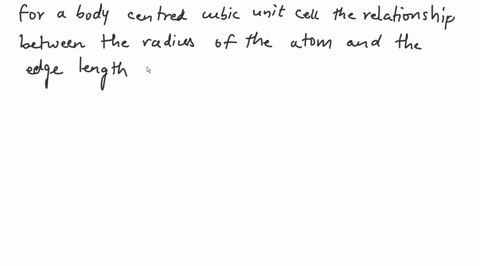 for a body centred cubic unit cell the relationship
between the radius of the atom and the
edge length